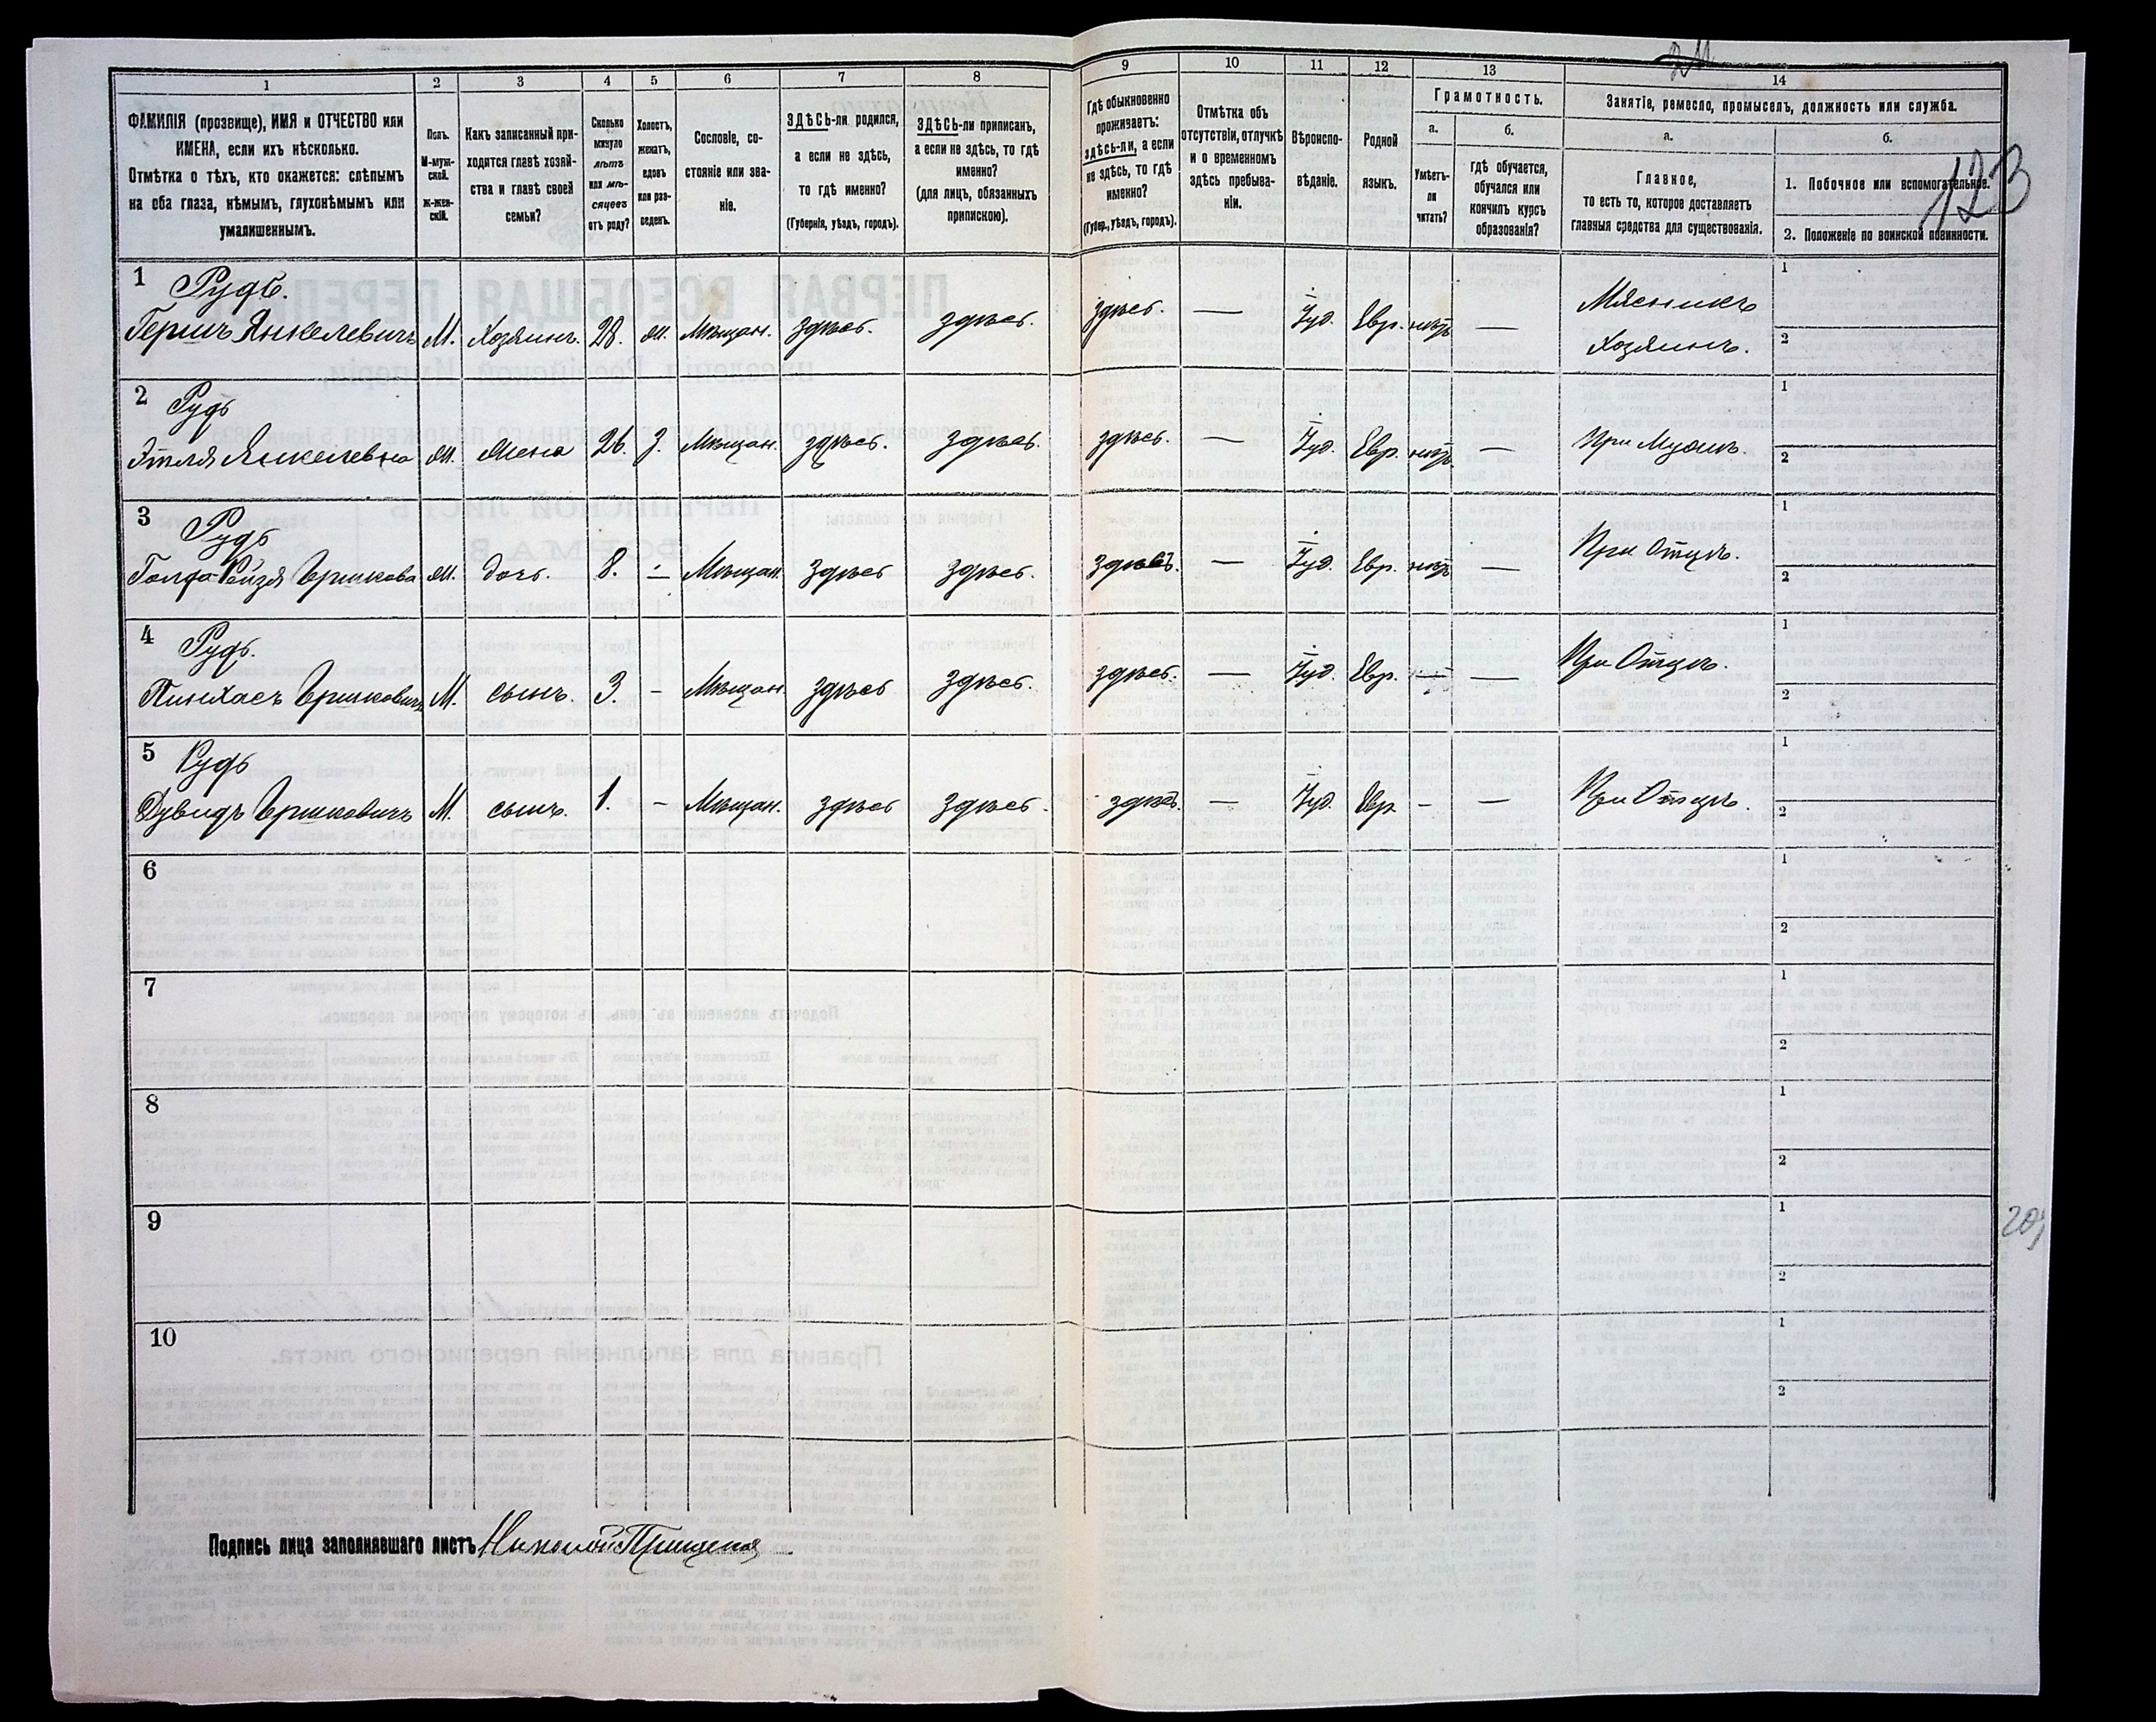 1
2
3
4
5
6
7
8
9
10
11
12
13
14
ФАМИЛІЯ (прозвище), ИМЯ и ОТЧЕСТВО или
ИМЕНА, если ихъ нѣсколько.
Отмѣтка о тѣхъ, кто окажется: слѣпымъ
на оба глаза, нѣмымъ, глухонѣмымъ или
умалишеннымъ.
Полъ.
М-муж-
ской.
ж-жен-
скій.
Какъ записанный при-
ходится главѣ хозяй-
ства и главѣ своей
семьи?
Сколько
минуло
лѣтъ
или мѣ-
сяцевъ
отъ роду?
Холостъ,
женатъ,
вдовъ
или раз-
веденъ.
Сословіе, со-
стояніе или зва-
ніе.
ЗДѢСЬ-ли родился,
а если не здѣсь,
то гдѣ именно?
(Губернія, уѣздъ, городъ).
ЗДѢСЬ-ли приписанъ,
а если не здѣсь, то гдѣ
именно?
(для лицъ, обязанныхъ
припискою).
Гдѣ обыкновенно
проживаетъ:
здѣсь-ли, а если
не здѣсь, то гдѣ
именно?
(Губер., уѣздъ, городъ).
Отмѣтка объ
отсутствіи, отлучкѣ
и о временномъ
здѣсь пребыва-
ніи.
Вѣроиспо-
вѣданіе.
Родной
языкъ.
Грамотность.
а.
Умѣетъ-
ли
читать?
б.
гдѣ обучается,
обучался или
кончилъ курсъ
образованія?
Занятіе, ремесло, промыселъ, должность или служба.
а.
Главное,
то есть то, которое доставляетъ
главныя средства для существованія.
б.
1. Побочное или вспомогательное.
2. Положеніе по воинской повинности.
123
1
Рудь.
Гершъ Янкелевичъ М. Хозяинъ. 28. ж. Мѣщан. здѣсь. здѣсь. здѣсь. — Іуд. Евр. нѣтъ —
Мясникъ
Хозяинъ.
1
2
2
Рудь
Этля Янкелевна ж. жена 26. З. Мѣщан. здѣсь. здѣсь. здѣсь. — Іуд. Евр. нѣтъ — При Мужѣ.
1
2
3
Рудь
Рейзя Гершкова ж. дочь. 8. — Мѣщан. здѣсь здѣсь. здѣсь. — Іуд. Евр. нѣтъ — При Отцѣ.
1
2
4
Рудь.
Пинхасъ Гершковичъ М. сынъ. 3. - Мѣщан. здѣсь здѣсь. здѣсь. — Іуд. Евр. — — При Отцѣ.
1
2
5
Рудь
Дувидъ Гершковичъ М. сынъ. 1. - Мѣщан. здѣсь здѣсь. здѣсь. — Іуд. Евр. - — При Отцѣ.
1
2
6
1
2
7
1
2
8
1
2
9
1
2
10
1
2
Подпись лица заполнявшаго листъ Николай